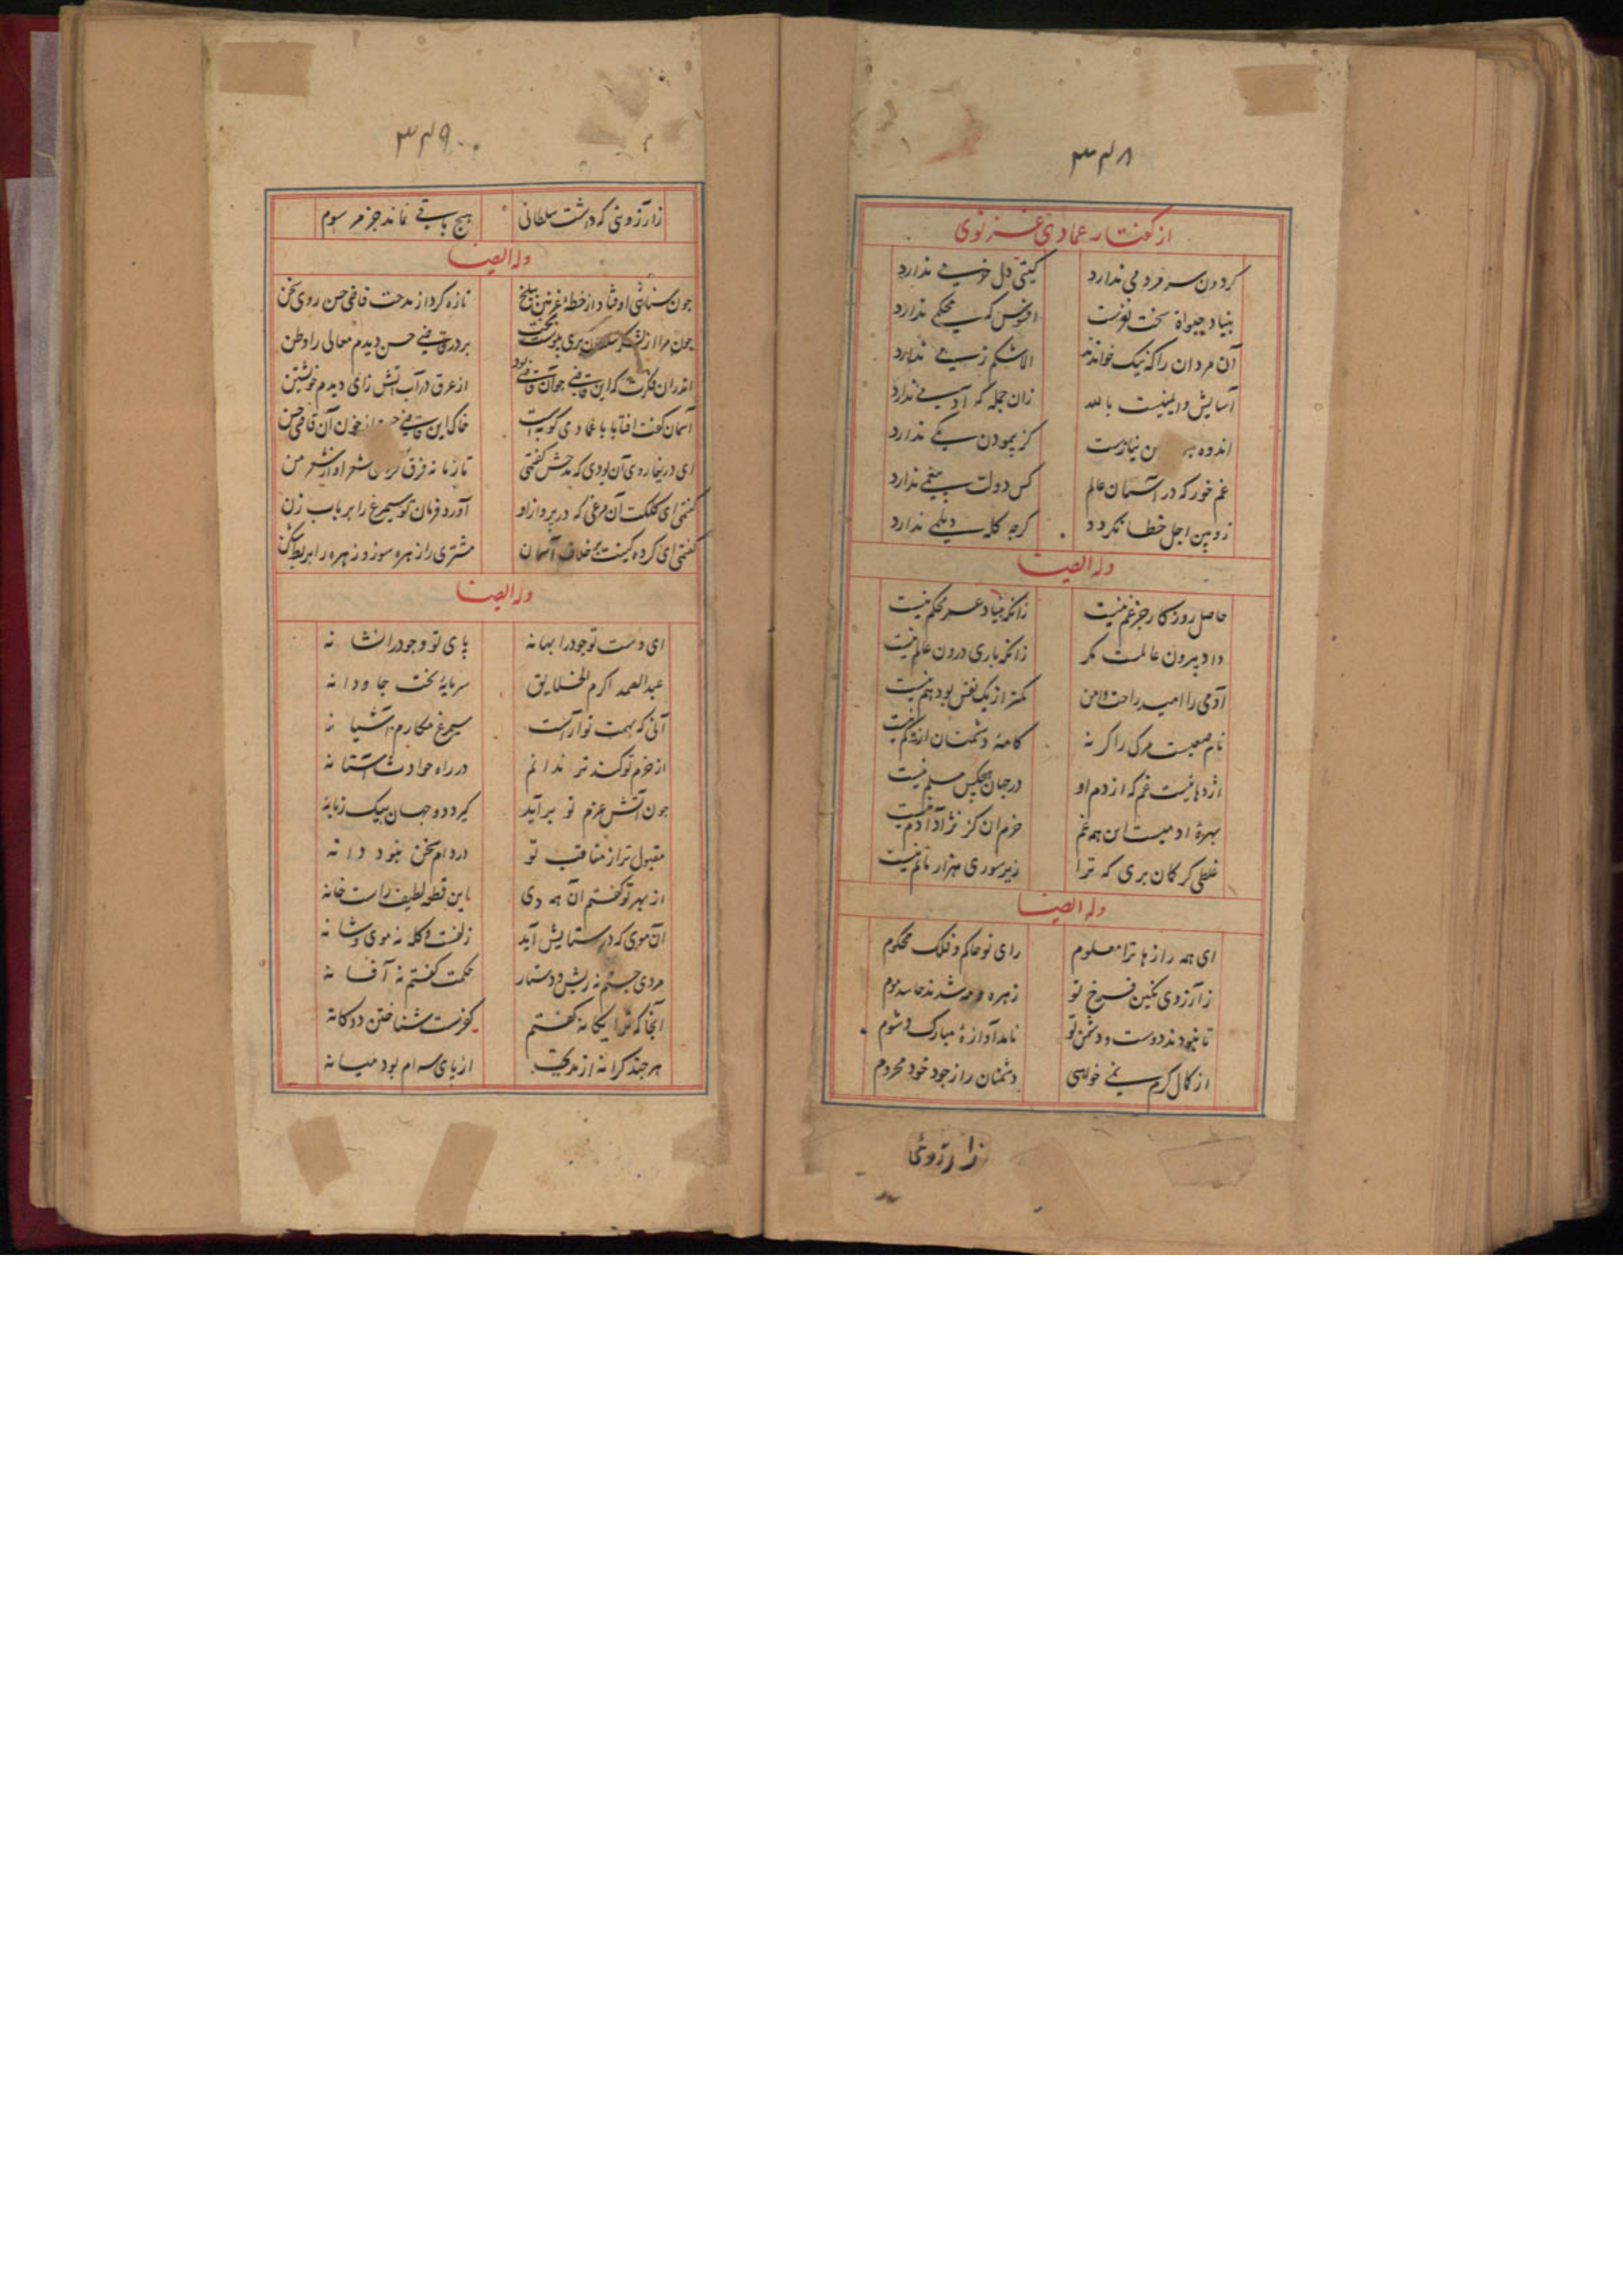 ۳۴۸
از گفتار عمادی غزنوی
کردون سر مردمی ندارد کیتی دل خرمی ندارد
بنیاد حیواة سخت نغزست افسوس که محکمی ندارد
آن مردان را که نیک خوانند الا شکم زمی ندارد
آسایش و ایمنیست بالله زان جمله که آدمی ندارد
اندوه نیازست کز بیمودن کمی ندارد
غم خور که در آسمان عالم کس دولت بیغمی ندارد
زوبین اجل خطا نکردد کرجه کله دیلمی ندارد
وله ایضا
حاصل روزکار جز غم نیست زانکه بنیاد عمر محکم نیست
داد بیرون عالمست مکر زانکه باری درون عالم نیست
آدمی را امید راحت و امن کمتر از یک نفس بود هم نیست
نام صعبست مرک را کر نه کامهٔ دشمنان ازو کم نیست
اژدهائیست غم که از دم او در جهان هیجکس مسلم نیست
بهرهٔ ادمیست این همه غم خرم ان کز نژاد آدم نیست
غلطی کر کمان بری که ترا زیر سوری هزار ماتم نیست
وله ایضا
ای همه رازها ترا معلوم رای تو حاکم و فلک محکوم
زآرزوی نکین فرخ تو زهره و مه شدند حاسد موم
تا نبودند دوست و دشمن تو نامد آوازهٔ مبارک و شوم
از کمال کرم نمی خواهی دشمنان را ز جود خود محروم
زآرزوئی
۳۴۹
زآرزوئی که داشت سلطانی هیج باقی نماند جز مرسوم
وله ایضا
جون سنائی اوفتاد از خطهٔ غزنین ببلخ تازه کرد از مدحت قاضی حسن روی سخن
جون مرا از لشکر بخت بر در قاضی حسن دیدم معالی را وطن
اندران فکرت که این قاضی جو آن قاضی بود از عرق در آب آتش زای دیدم خویشتن
آسمان کفت افتابا با عمادی کو به است خاک این قاضی از خون آن قاضی حسن
ای دریغا روی آن بودی که مدحش کفتمی تا زمانه فرق کردی شعر او از شعر من
کفتمی ای کلکت آن مرغی که در برواز او آورد فرمان تو سیمرغ را بر باب زن
کفتمی ای کرده کینت بر خلاف آسمان مشتری را زهره سوز و زهره را بربط شکن
وله ایضا
ای دست تو جود را بهانه بای تو وجود را نشانه
عبدالصمد اکرم الخلایق سرمایهٔ بخت جاودانه
آنی که بهمت تو آراست سیمرغ مکارم آشیانه
از حزم تو کندتر ندانم در راه حوادث آستانه
جون آتش عزم تو برآید کیرد دو جهان بیک زبانه
مقبول تر از مناقب تو در دام سخن نبود دانه
از بهر تو کفتم آن همه دی این قطعه لطیف راست خانه
آن موی که در ستایش آید زلفست و کله نه موی و شانه
مردی جستم نه ریش و دستار حکمت کفتم نه آفسانه
آنجا که ترا یکانه کفتم کفرست شناختن دوکانه
هر جند کرانه از مدیح از بای سرام بود میانه